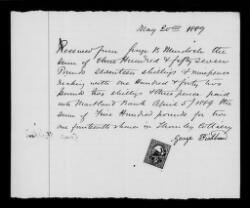 May 20th 1889
Received from George B. the
sum of three Hundred & fifty seven
Pounds seventeen shillings & ninepence
making with one Hundred & forty two
pounds two shillings & three pence paid
into Bank April 5th 1889 the
sum of Five Hundred pounds for two
one fourteenth shares in Thornley Colliery
George